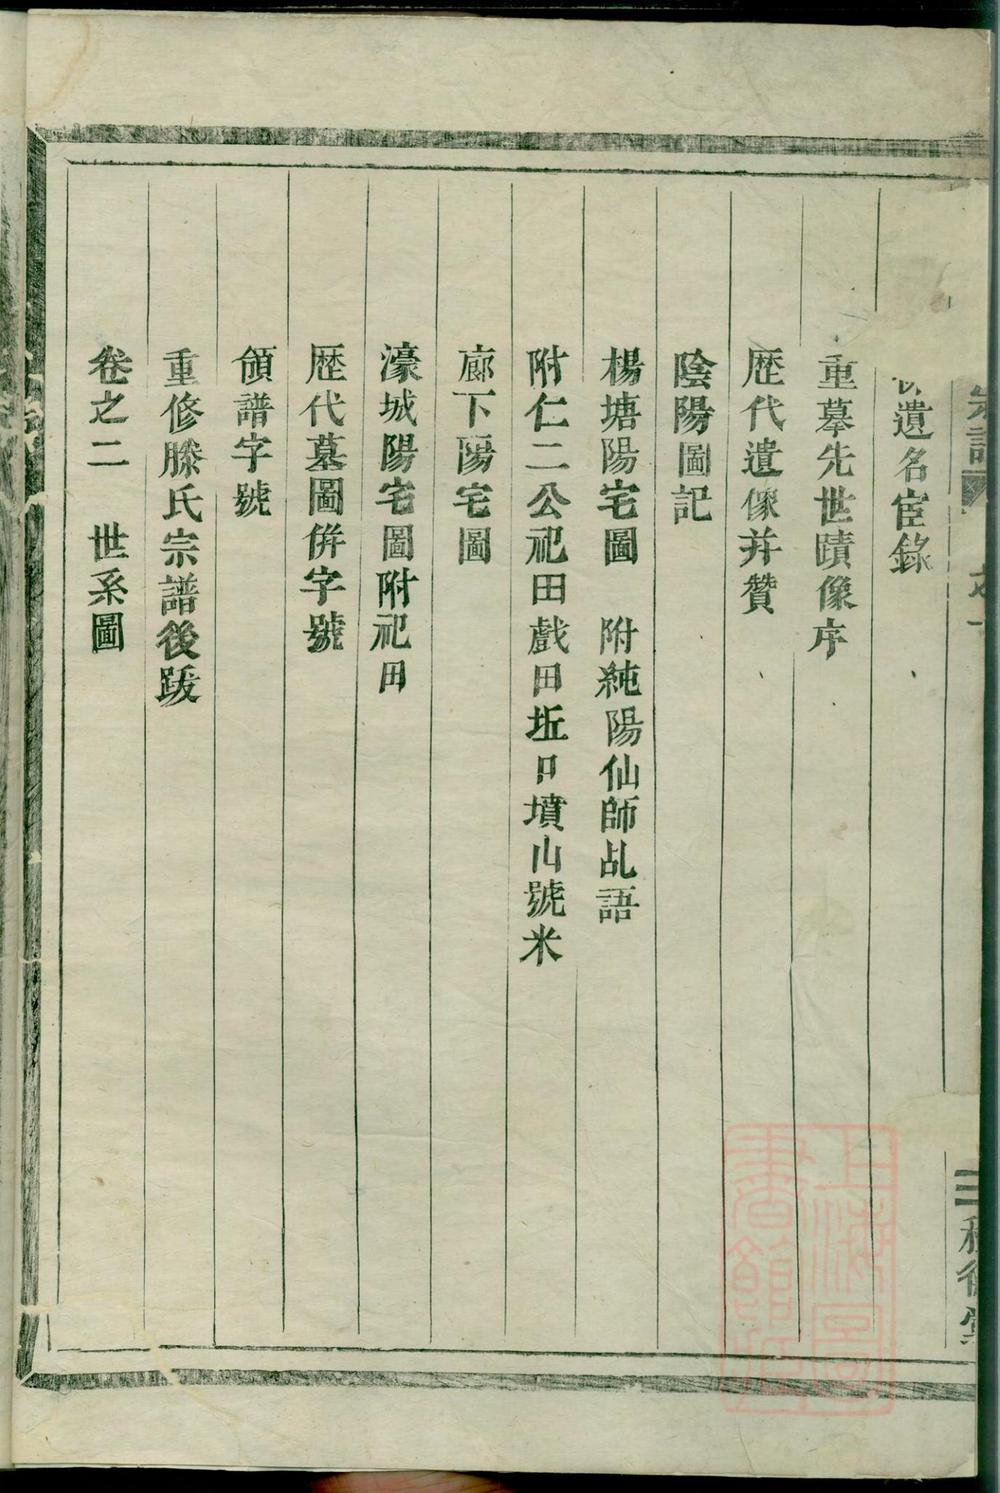 遺名宦錄
重摹先世蹟像序
歷代遺像并贊
陰陽圖記
楊塘陽宅圖　附純陽仙師乩語
附仁二公祀田戲田坵口墳山號米
廊下陽宅圖
濠城陽宅圖附祀田
歷代墓圖併字號
領譜字號
重修滕氏宗譜後跋
卷之二　世系圖
上海圖書館藏